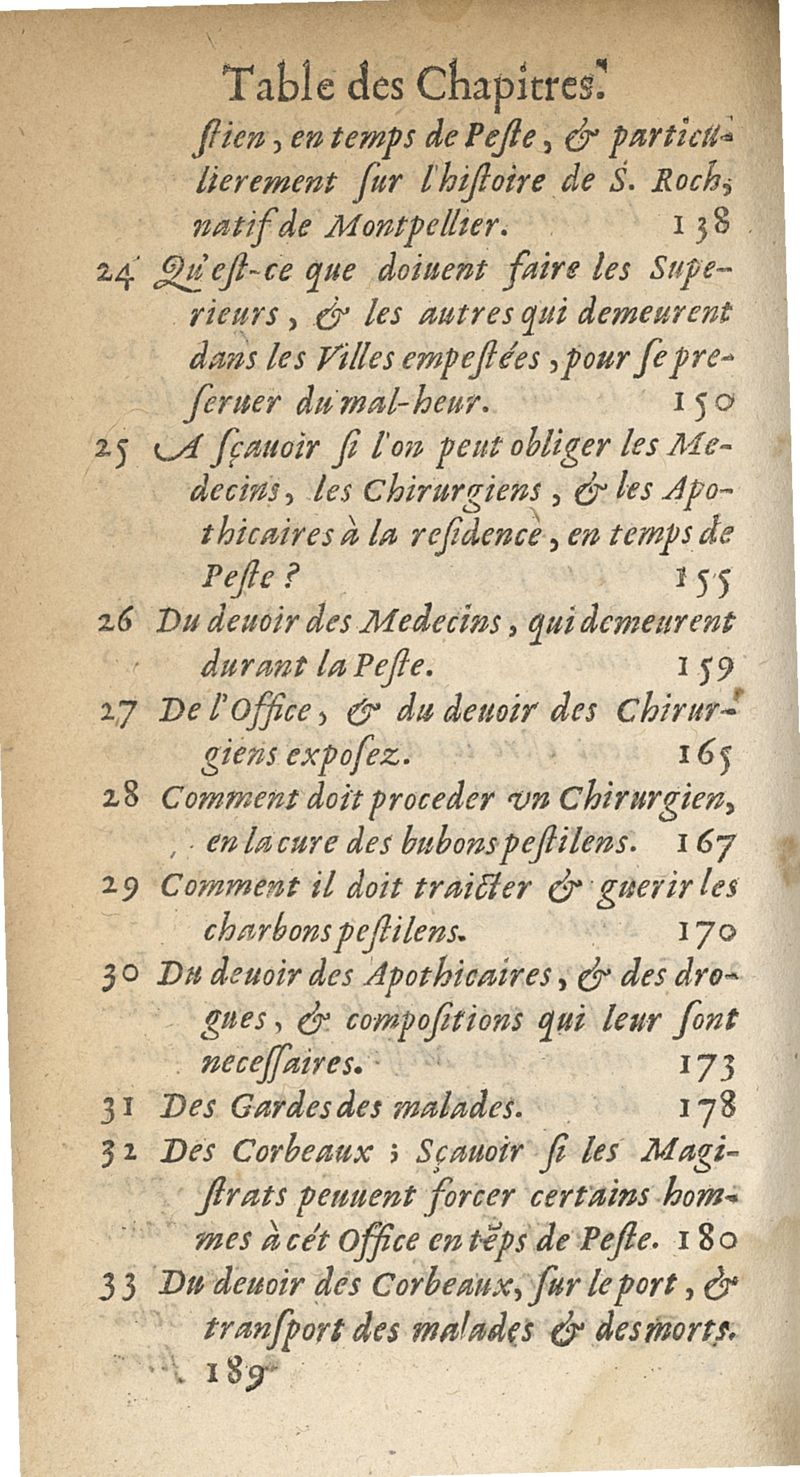 Table des Chapitres.
ſtien, en temps de Peſte, & particu-
lierement ſur l'hiſtoire de S. Roch,
natif de Montpellier. 138
24 Qu'eſt-ce que doiuent faire les Supe-
rieurs, & les autres qui demeurent
dans les Villes empeſtées, pour ſe pre-
ſeruer du mal-heur. 150
25 A ſçauoir ſi l'on peut obliger les Me-
decins, les Chirurgiens, & les Apo-
thicaires à la reſidence, en temps de
Peſte? 155
26 Du deuoir des Medecins, qui demeurent
durant la Peſte. 159
27 De l'Office, & du deuoir des Chirur-
giens expoſez. 165
28 Comment doit proceder vn Chirurgien,
en la cure des bubons peſtilens. 167
29 Comment il doit traicter & guerir les
charbons peſtilens. 170
30 Du deuoir des Apothicaires, & des dro-
gues, & compoſitions qui leur ſont
neceſſaires. 173
31 Des Gardes des malades. 178
32 Des Corbeaux; Sçauoir ſi les Magi-
ſtrats peuuent forcer certains hom-
mes à cét Office en tẽps de Peſte. 180
33 Du deuoir des Corbeaux, ſur le port, &
tranſport des malades & des morts.
189